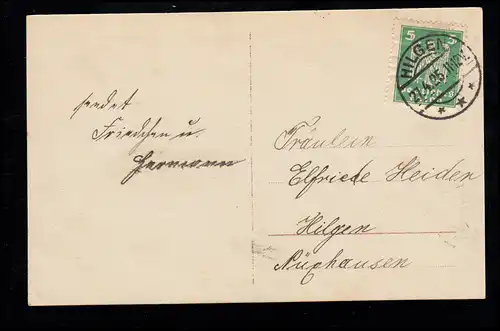 sendet
Friedchen u.
Hermann
5
HILGEN
21.4.25.
Fräulein
Elfriede Heiden
Hilgen
Nüxhausen